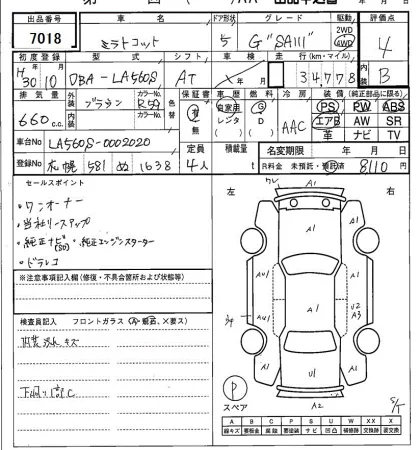 出品番号 車名 ドア形状 グレード 駆動 評価点
7018 ミラトコット 5 G"SAⅢ" 2WD 4WD 4
初度登録 型式 シフト 車検 走行(KM・マイル) 内装
H30 10 DBA-LA560S AT 34,778 B
排気量 外装 ブラウン カラーNo. R59 色替 保証書 車歴 燃料 冷房 装備(純正部品に限る)
660 c.c. 内装 カラーNo. 有 無 自家用 レンタ G D AAC PS PW ABS
エアB AW SR
革 ナビ TV
車台No LA560S-0002020 定員 積載量 名変期限 年 月 日
登録No 札幌 581 ぬ 1638 4人 t R料金 未預託・預託済 8110 円
セールスポイント
・ワンオーナー
・当社リースアップ
・純正ナビ(SD) ・純正エンジンスターター
・ドラレコ
※注意事項記入欄(修復・不具合箇所および状態等)
検査員記入 フロントガラス(A・飛石、×要ス)
内装汚れ キズ
下回り C
左 右
A1
A1
AU1 A1 A1
AU1 A1 U2 A3
A1 U1 A1
P
スペア
A2
A B C P S U W X XX X
線キズ 要板金 腐食 要塗装 サビ 凹凸 補修跡 交換跡 要交換